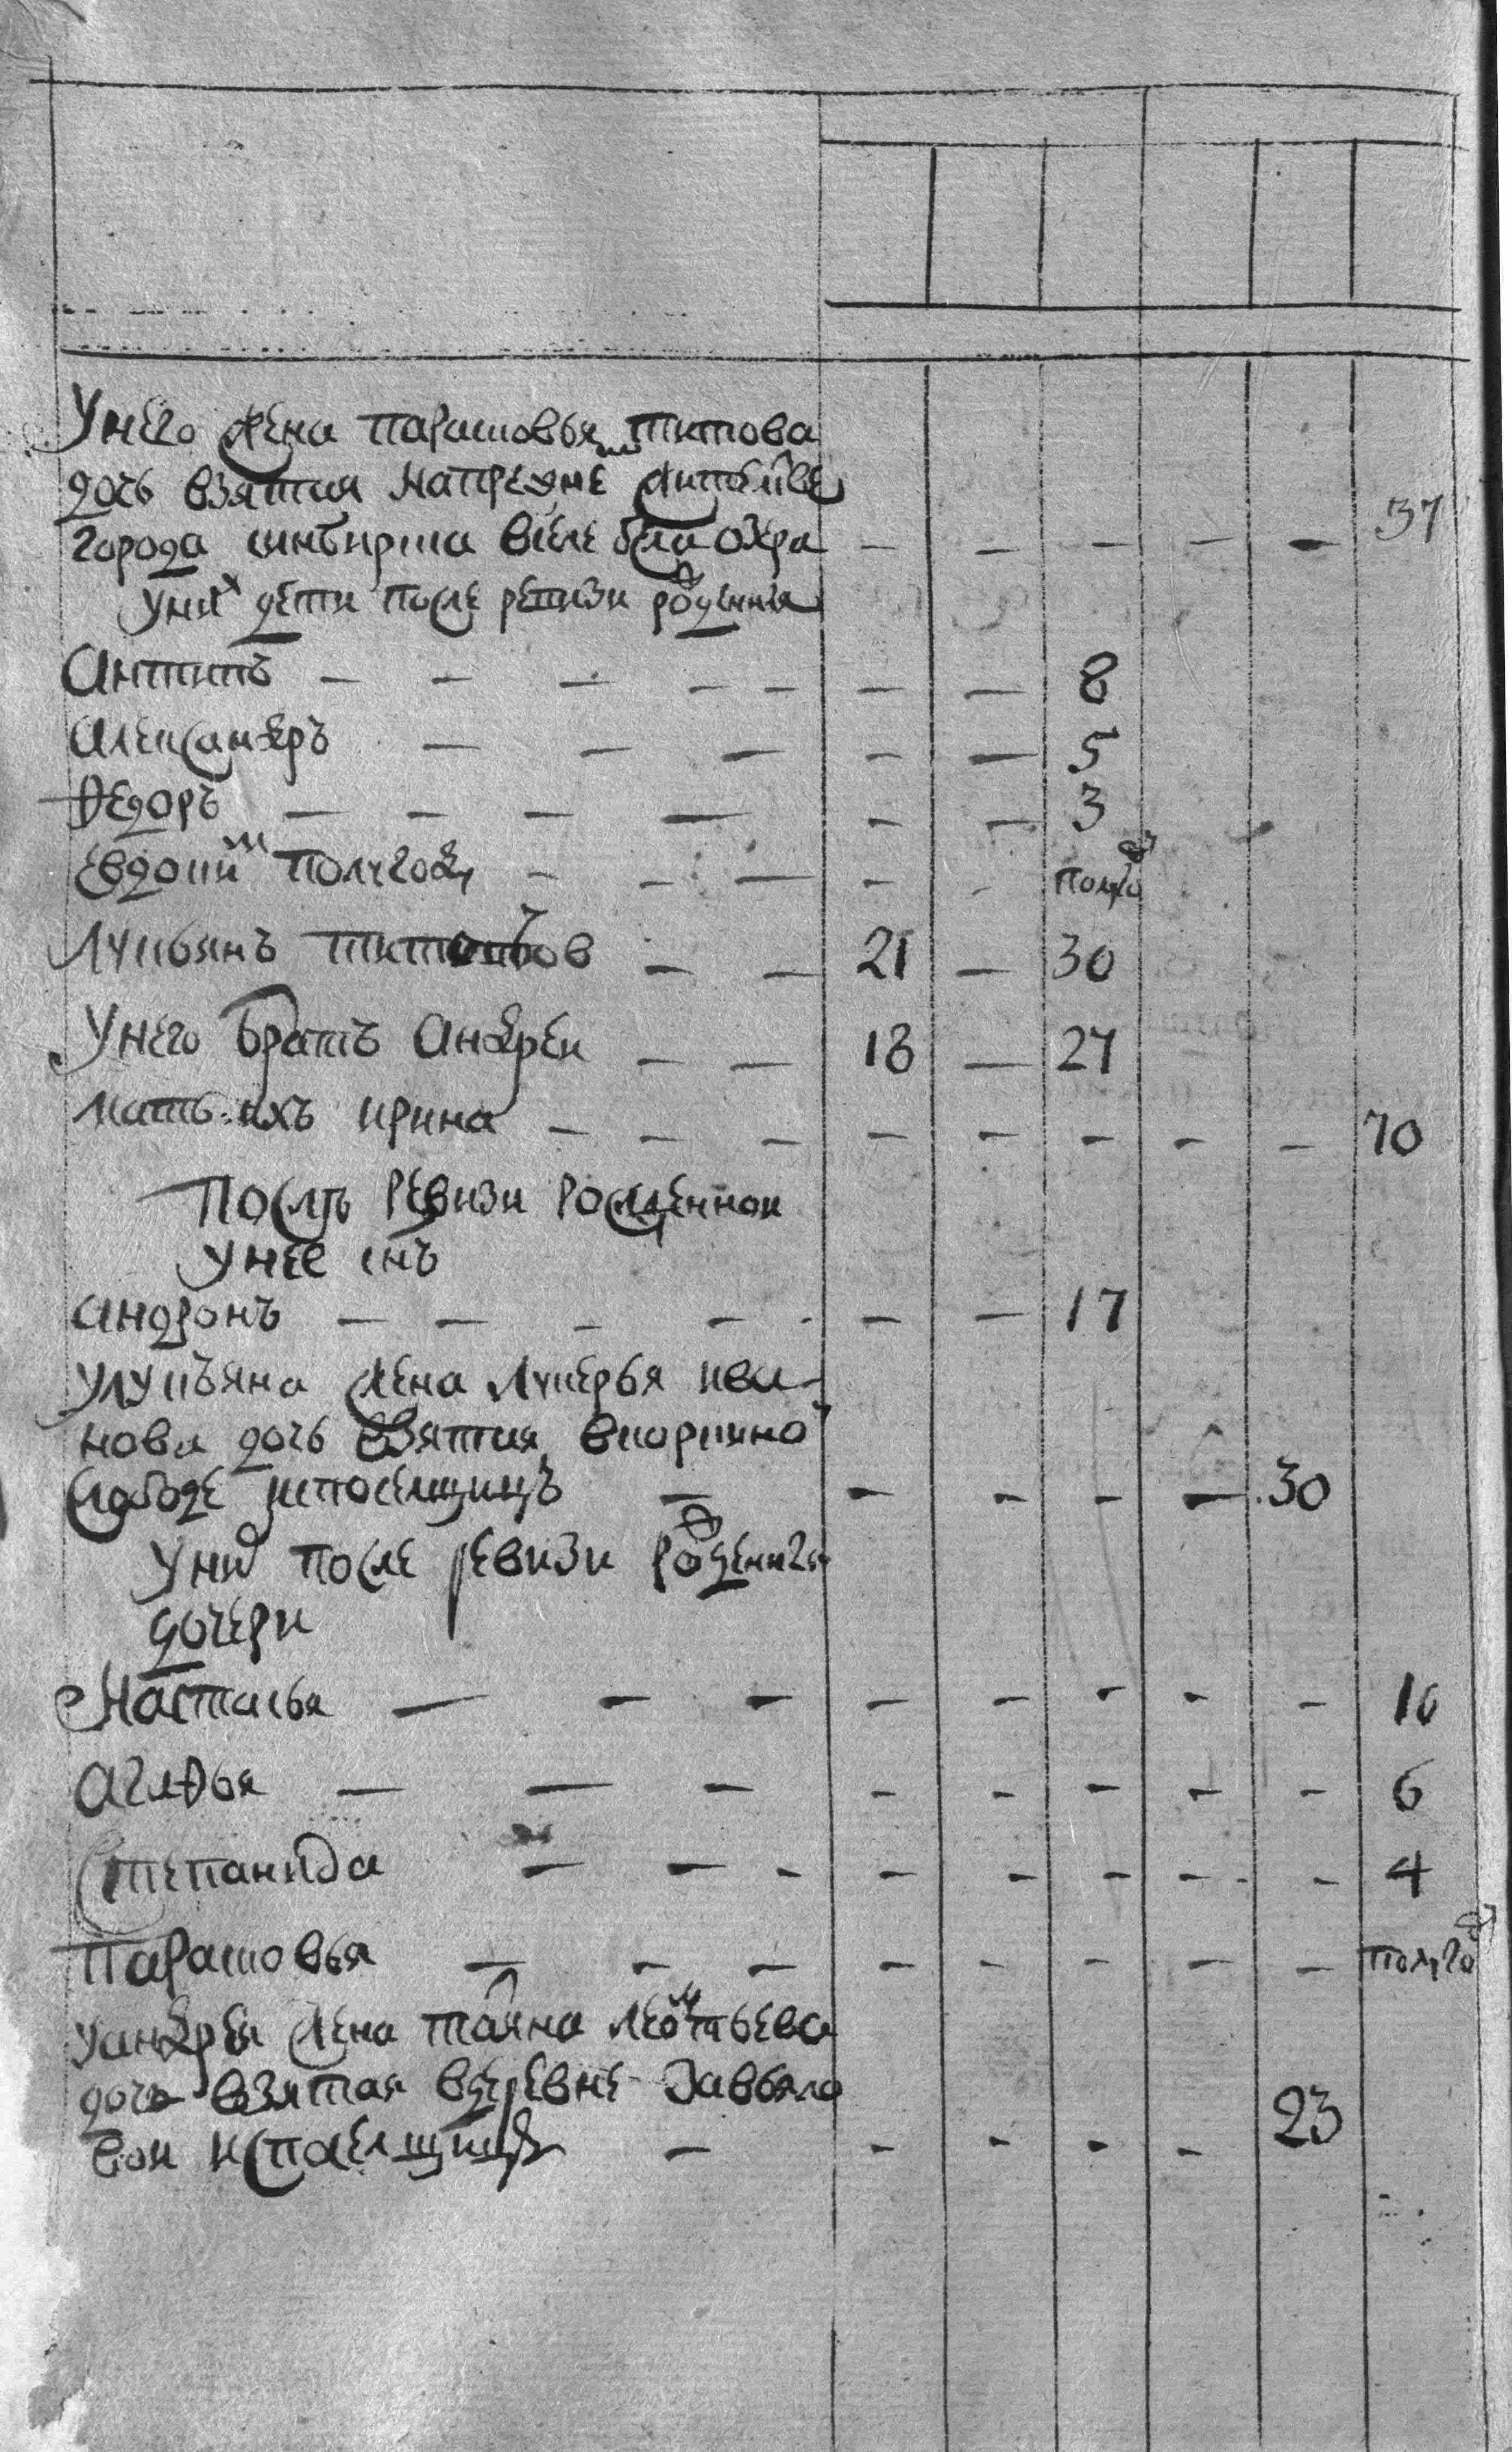 У него жена Парасковья Титова
дочь взятая напрежне жителстве
города Синбирска вселе бела озера – – – – – 37
У них дети после ревизи рожденныя
Антипъ – – – – – – – 8
Александръ – – – – – 5
Ѳедоръ – – – – – – 3
Евдоким полугоду – – – – – полуго
Лукьянъ Титов – – 21 – 30
У него братъ Андреи – – 18 – 27
Мать ихъ Ирина – – – – – – – – 70
Послѣ ревизи рожденнои
у нее снъ
Андронъ – – – – – – – 17
У Лукъяна жена Лукерья Ива
нова дочь взятая вкорпино
слободе испоселщицъ – – – – – 30
У них после ревизи рожденныя
дочери
Настасья – – – – – – – – 10
Агаѳья – – – – – – – – 6
Степанида – – – – – – – – 4
Парасковья – – – – – – – – полуго
У Андрея жена Татяна Леонтьева
дочь взятая вдеревне Завьяло
вои испоселщицъ – – – – – 23